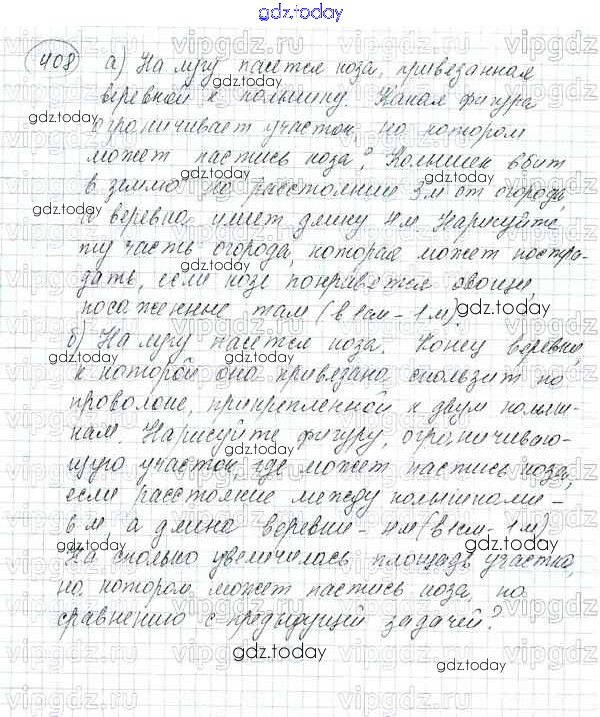 gdz.today
408 а) На лугу пасется коза, привязанная
веревкой к колышку. Какая фигура
ограничивает участок, на котором
может пастись коза? Колышек вбит
в землю на расстоянии 3м от огорода,
а веревка имеет длину 4м. Нарисуйте
ту часть огорода, которая может постра-
дать, если козе понравятся овощи,
посаженные там (в 1см - 1м).
б) На лугу пасется коза. Конец веревки,
к которой она привязана, скользит по
проволоке, прикрепленной к двум колыш-
кам. Нарисуйте фигуру, ограничиваю-
щую участок, где может пастись коза,
если расстояние между колышками -
6 м, а длина веревки - 4м (в 1см - 1м)
На сколько увеличилась площадь участка,
на котором может пастись коза, по
сравнению с предыдущей задачей?
gdz.today
gdz.today